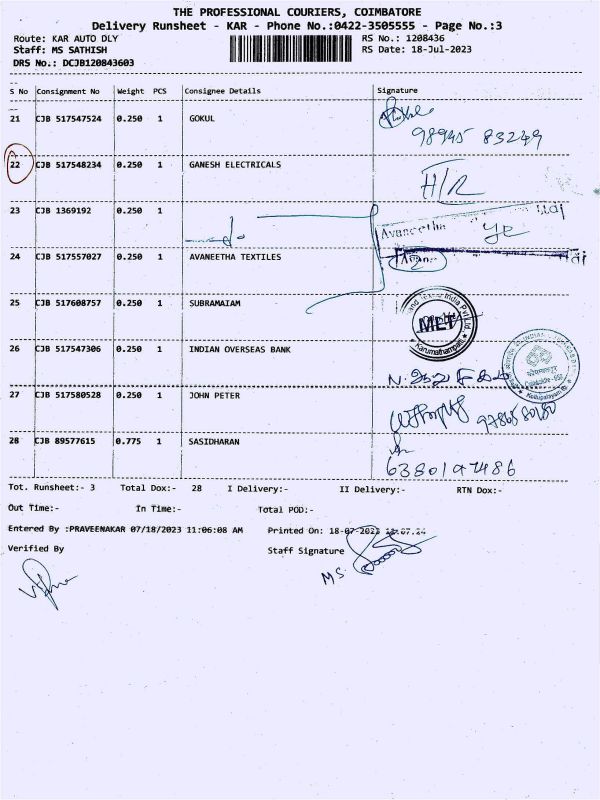 THE PROFESSIONAL COURIERS, COIMBATORE
Delivery Runsheet - KAR - Phone No.:0422-3505555 - Page No.:3
Route: KAR AUTO DLY RS No.: 1208436
Staff: MS SATHISH RS Date: 18-Jul-2023
DRS No.: DCJB120843603
S No Consignment No Weight PCS Consignee Details Signature
21 CJB 517547524 0.250 1 GOKUL
98945 83249
22 CJB 517548234 0.250 1 GANESH ELECTRICALS
H/R
23 CJB 1369192 0.250 1
Avaneetha Ltd
24 CJB 517557027 0.250 1 AVANEETHA TEXTILES
25 CJB 517608757 0.250 1 SUBRAMAIAM
MLT
Karumathampatti
26 CJB 517547306 0.250 1 INDIAN OVERSEAS BANK
27 CJB 517580528 0.250 1 JOHN PETER
28 CJB 89577615 0.775 1 SASIDHARAN
6380197486
Tot. Runsheet:- 3 Total Dox:- 28 I Delivery:- II Delivery:- RTN Dox:-
Out Time:- In Time:- Total POD:-
Entered By :PRAVEENAKAR 07/18/2023 11:06:08 AM Printed On: 18-07-2023
Verified By Staff Signature
M S